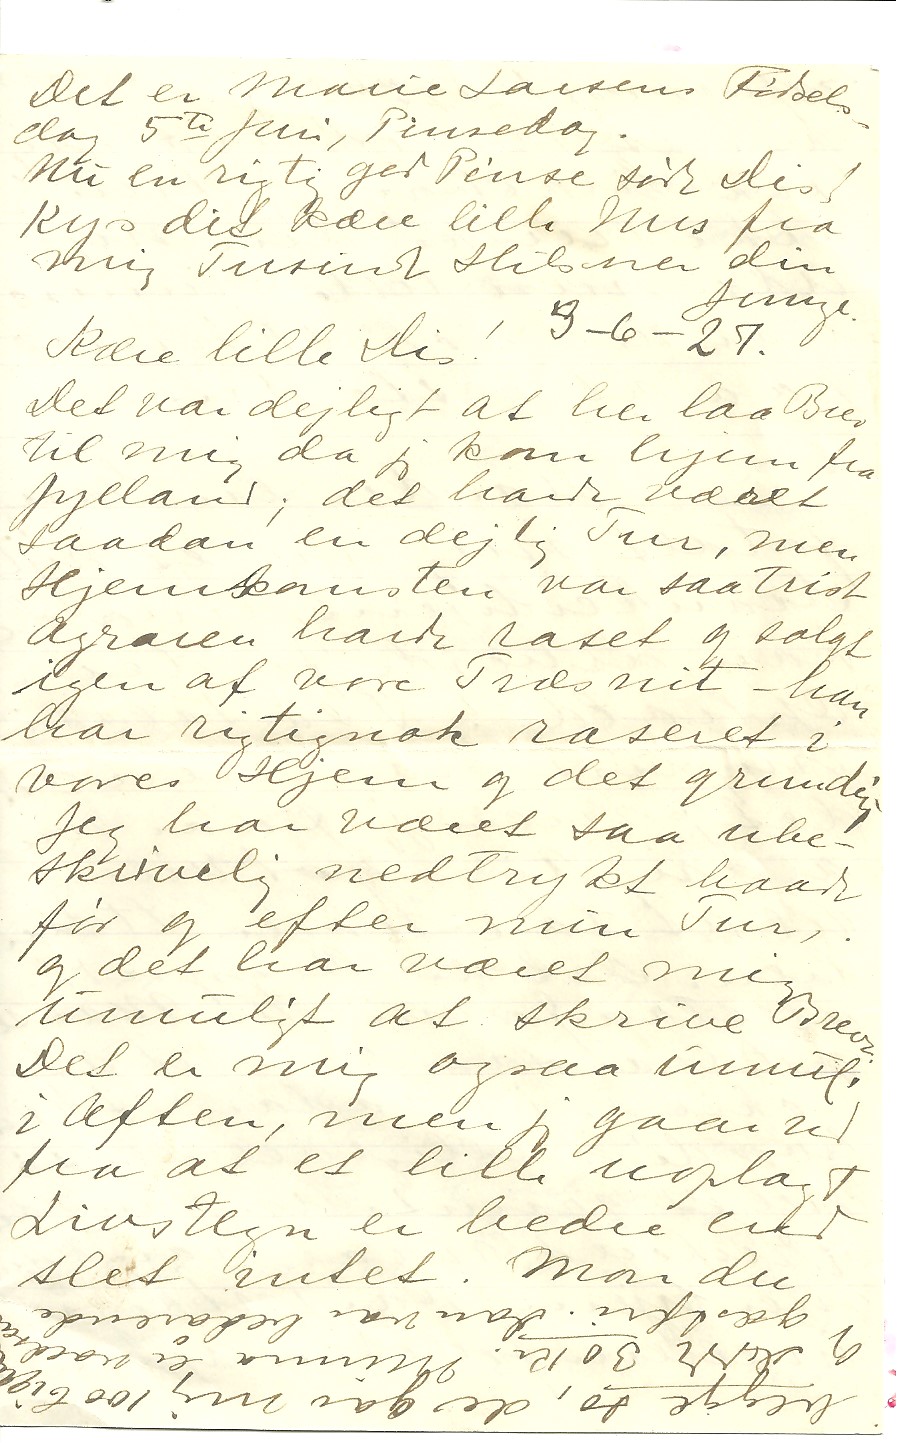 Det er Marie Larsens Fødsels-
dag 5te Juni, Pinsedag.
Nu en rigtig god Pinse søde Dis!
Kys dit kære lille Nus fra
mig Tusinde Hilsner din
Junge.
3-6-27.
Kære lille Dis!
Det var dejligt at her laa Brev
til mig da jeg kom hjem fra
Jylland; det havde været
saadan en dejlig Tur, men
Hjemkomsten var saa trist
Agraren havde raset og solgt
igen af vore Træsnit – han
har rigtignok raseret i
vores Hjem og det grundigt
Jeg har været saa ube-
skrivelig nedtrykt baade
før og efter min Tur,
og det har været mig
umuligt at skrive Breve.
Det er mig ogsaa umul.
i Aften, men jeg gaar ud
fra at et lille uoplagt
Livstegn er bedre end
slet intet. Mon du
begge to, de gav mig 100
og 30 Kr. Minna er
gæstfri. Han var bedaarende